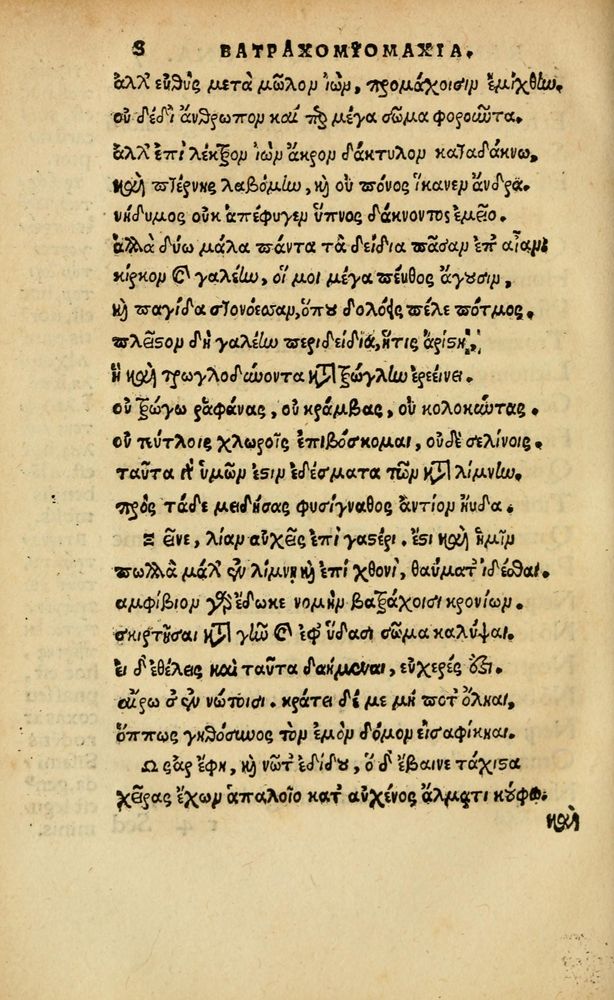 8 ΒΑΤΡΑΧΟΜΥΟΜΑΧΙΑ.
ἀλλ' εὐθὺς μετὰ μῶλον ἰὼν, προμάχοισιν ἐμίχθην.
οὐ δέδι' ἄνθρωπον καί περ μέγα σῶμα φοροῦντα.
ἀλλ' ἐπὶ λέκτρον ἰὼν ἄκρον δάκτυλον καταδάκνω,
καὶ πτέρνης λαβόμην, καὶ οὐ πόνος ἵκανεν ἄνδρα.
νήδυμος οὐκ ἀπέφυγεν ὕπνος δάκνοντος ἐμεῖο.
ἀλλὰ δύω μάλα πάντα τὰ δείδια πᾶσαν ἐπ' αἶαν,
κίρκον καὶ γαλέην, οἵ μοι μέγα πένθος ἄγουσιν,
καὶ παγίδα στονόεσσαν, ὅπου δολόεις πέλε πότμος.
πλεῖστον δὴ γαλέην περιδείδια, ἥτις ἀρίστη,
ἣ καὶ τρωγλοδύνοντα κατὰ τρώγλην ἐρεείνει.
οὐ τρώγω ῥαφάνας, οὐ κράμβας, οὐ κολοκύντας.
οὐ πύτλοις χλωροῖς ἐπιβόσκομαι, οὐδὲ σελίνοις.
ταῦτα γὰρ ὑμῶν ἐστιν ἐδέσματα τῶν κατὰ λίμνην.
πρὸς τάδε μειδήσας φυσίγναθος ἀντίον ηὔδα.
Ξεῖνε, λίαν αὐχεῖς ἐπὶ γαστέρι. ἔστι καὶ ἡμῖν
πολλὰ μάλ' ἐν λίμνῃ καὶ ἐπὶ χθονὶ, θαύματ' ἰδέσθαι.
ἀμφίβιον γὰρ ἔδωκε νομὴν βατράχοισι κρονίων.
σκιρτῆσαι κατὰ γῆν καὶ ἐφ' ὕδασι σῶμα καλύψαι.
εἰ δ' ἐθέλεις καὶ ταῦτα δαήμεναι, εὐχερές ἐστι.
αἴρω σ' ἐν νώτοισι. κράτει δέ με μή ποτ' ὄληαι,
ὅππως γηθόσυνος τὸν ἐμὸν δόμον εἰσαφίκηαι.
Ὣς ἄρ' ἔφη, καὶ νῶτ' ἐδίδου, ὁ δ' ἔβαινε τάχιστα
χεῖρας ἔχων ἁπαλοῖο κατ' αὐχένος ἅλματι κούφῳ.
καὶ